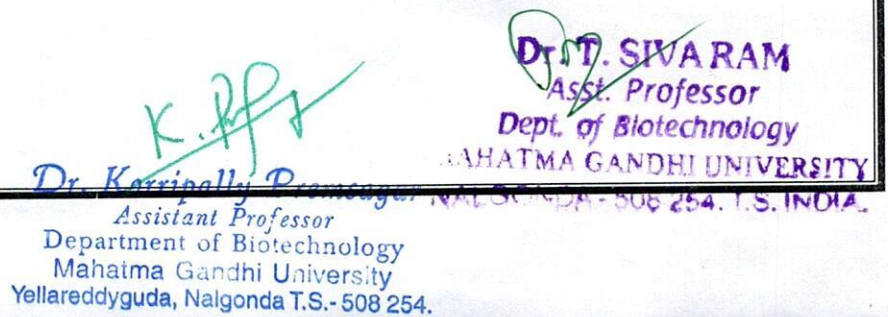 K.
Dr. Korripally Premsagar
Assistant Professor
Department of Biotechnology
Mahatma Gandhi University
Yellareddyguda, Nalgonda T.S.- 508 254.
Dr. T. SIVA RAM
Asst. Professor
Dept. of Biotechnology
MAHATMA GANDHI UNIVERSITY
NALGONDA - 508 254. T.S. INDIA.